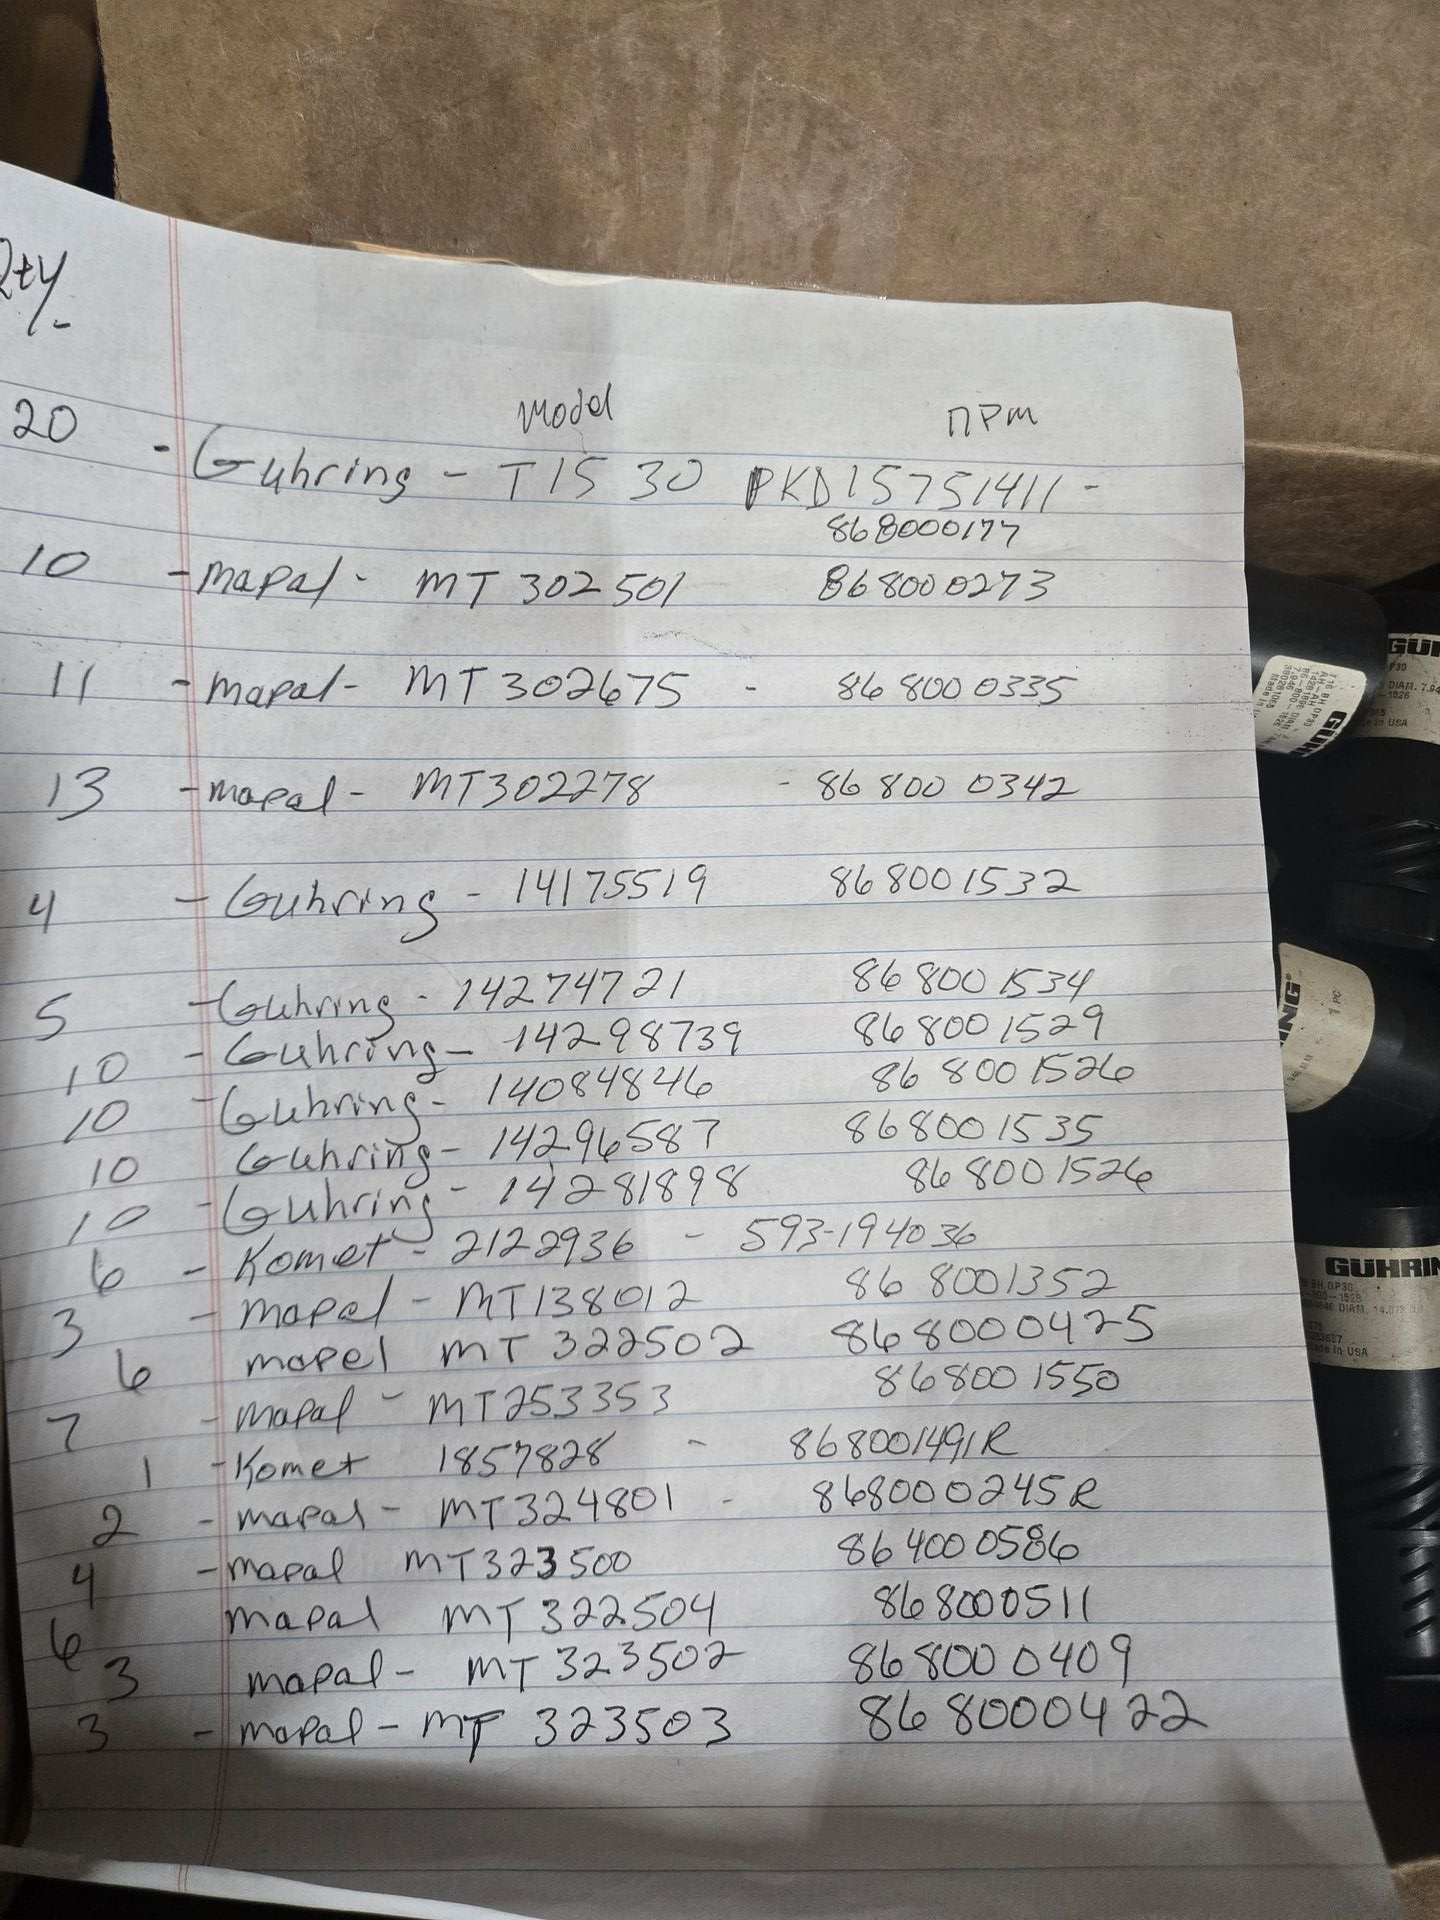 Qty.
Model MPM
20 - Guhring - T15 30 PKD15751411 -
868000177
10 - Mapal - MT 302501 868000273
11 - Mapal - MT 302675 - 868000335
13 - Mapal - MT302278 - 868000342
4 - Guhring - 14175519 868001532
5 - Guhring - 14274721 868001534
10 - Guhring - 14298739 868001529
10 - Guhring - 14084846 868001526
10 Guhring - 14296587 868001535
10 - Guhring - 14281898 868001526
6 - Komet - 2122936 - 593-194036
3 - Mapal - MT138012 868001352
6 mapel MT 322502 868000425
7 - Mapal - MT253353 868001550
1 - Komet 1857828 - 868001491R
2 - Mapal - MT324801 - 868000245R
4 - Mapal MT323500 864000586
6 Mapal MT 322504 868000511
3 Mapal - MT 323502 868000409
3 - Mapal - MT 323503 868000422
GUHRING
P30
DIAM. 7.94
-1526
Made in USA
GUHRING
1 PC
GUHRIN
BH.OP30.
-800-1528
DIAM. 14.073
Made in USA